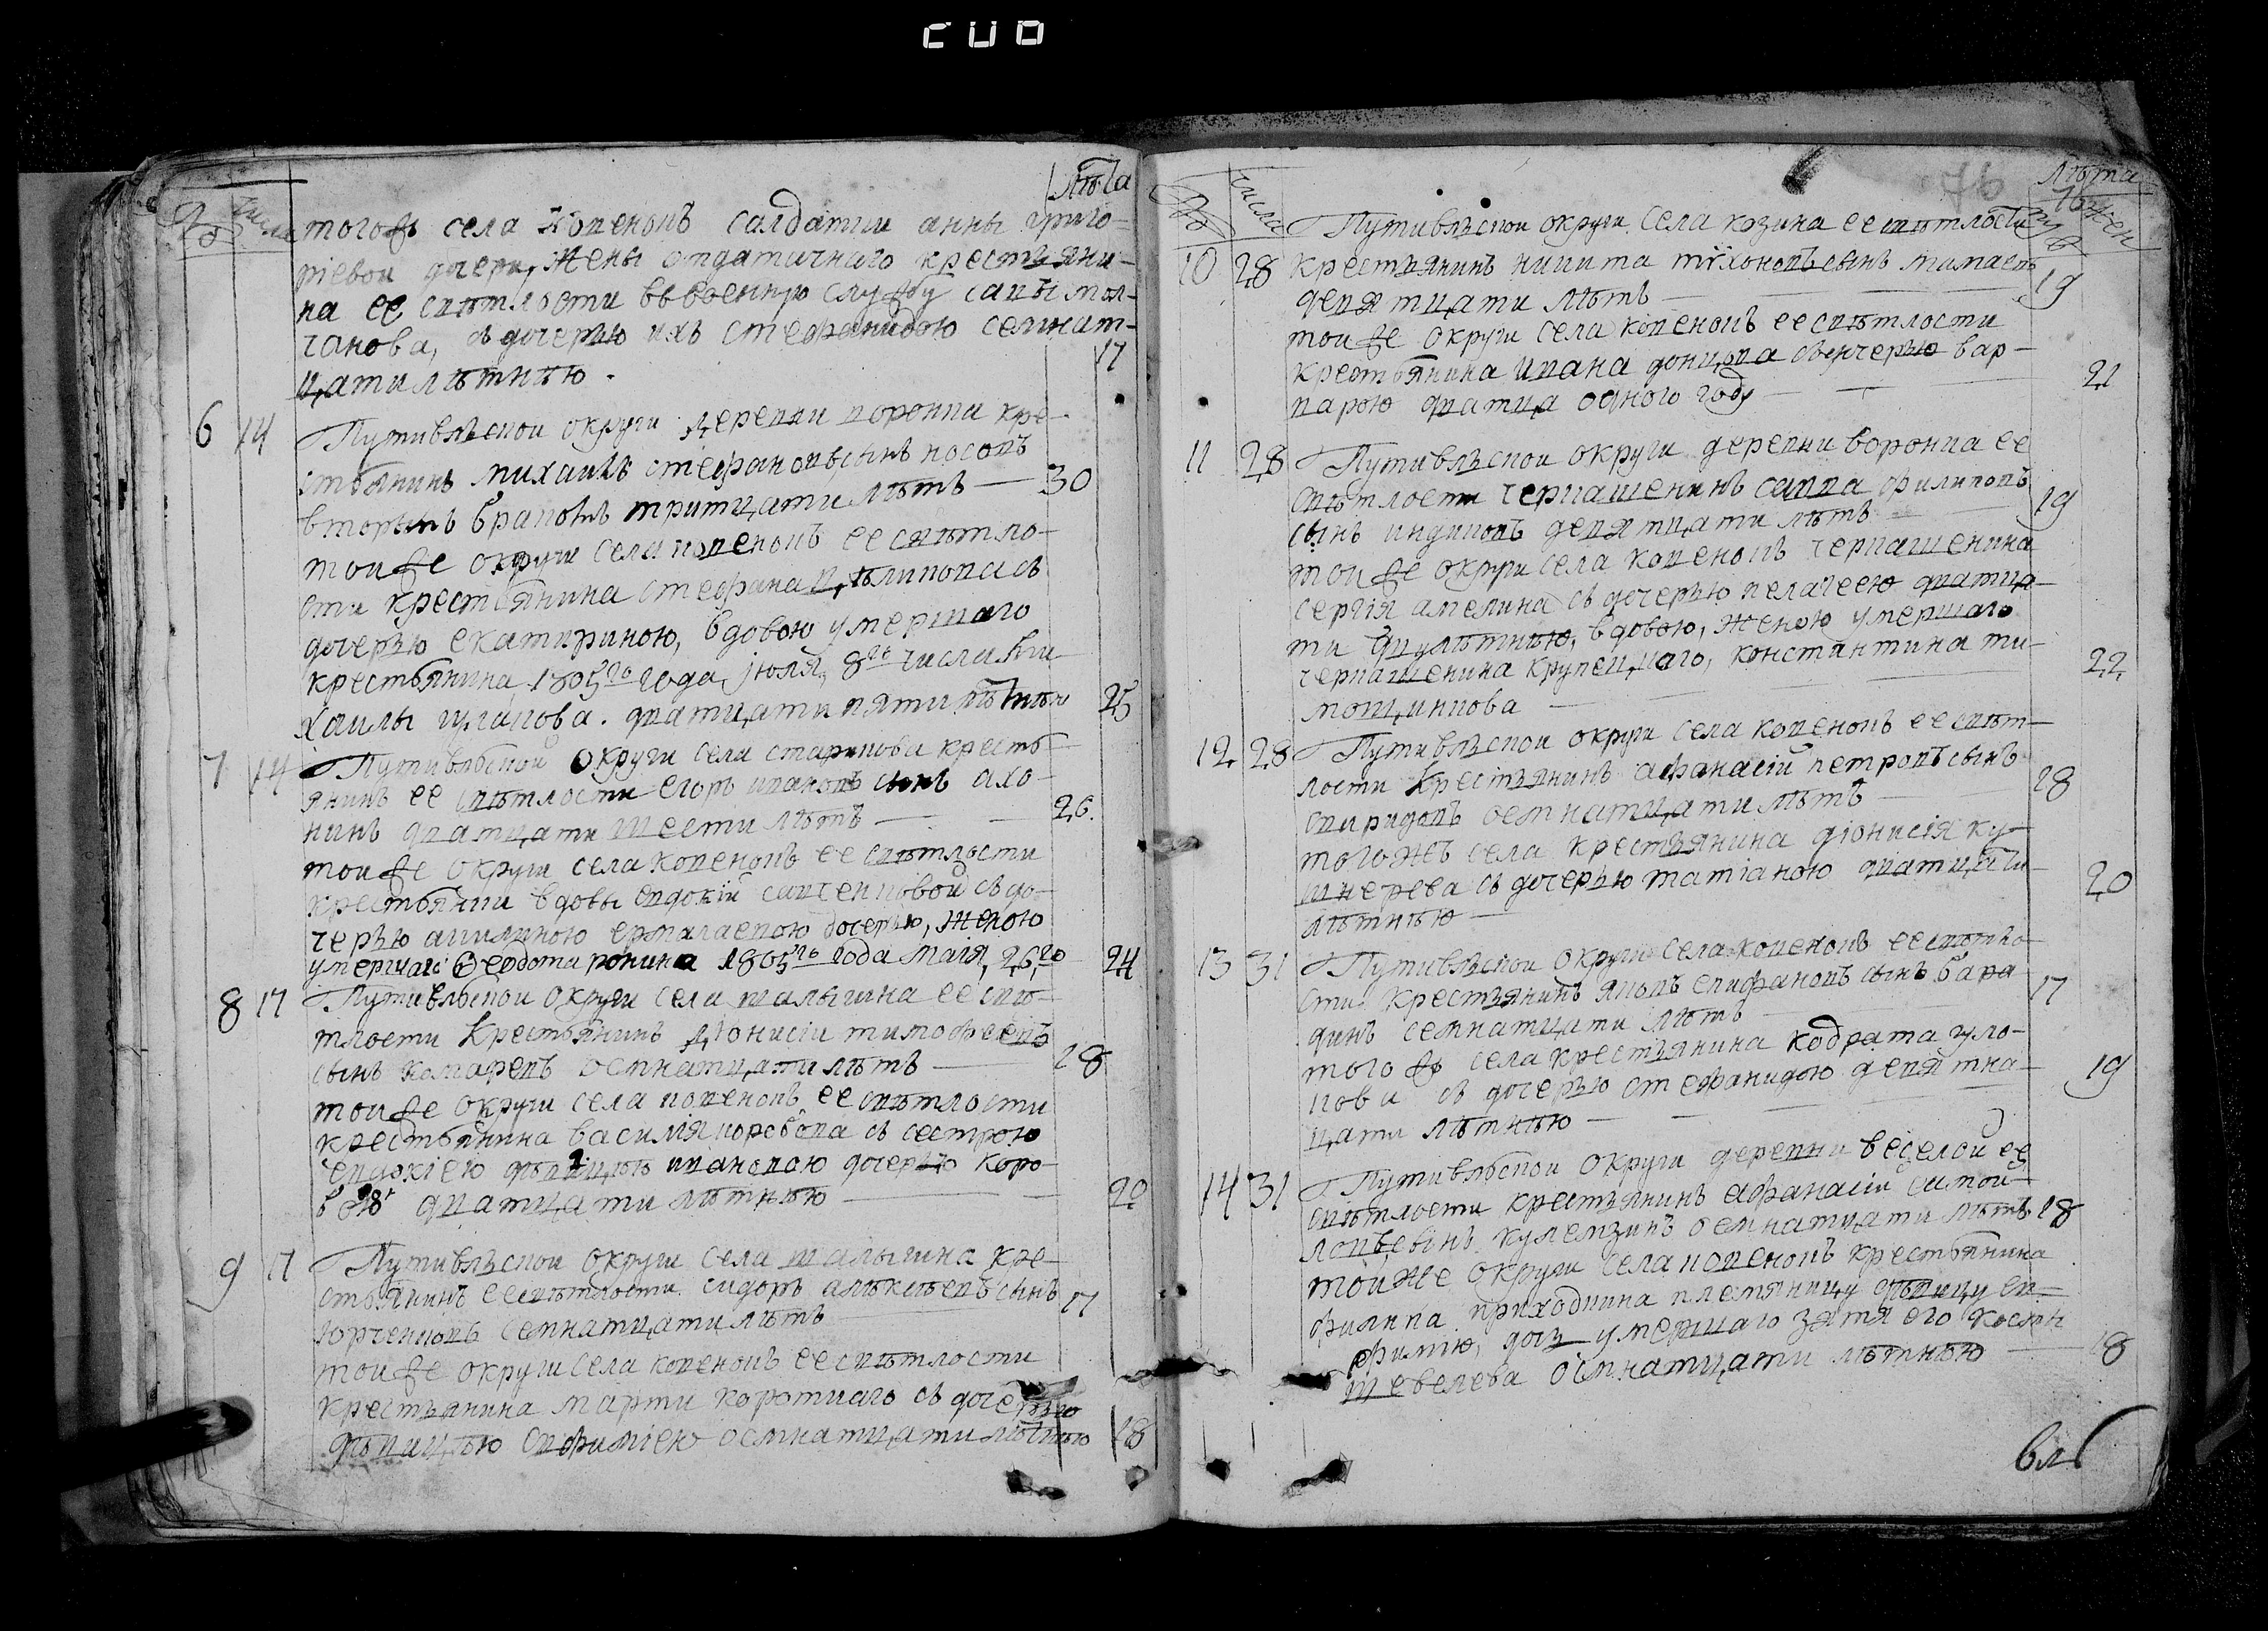 Лѣта
№ числа
тогожъ села Копенокъ салдатки анны григо-
ріевои дочери, жены отдатичнаго крестьяни-
на ее свѣтлости ввоенную службу савы мол-
чанова, съ дочерью ихъ стефанидою семнат-
цатилѣтнѣю. 17
6 14 Путивльскои округи деревни воронки кре-
стьянинъ михаилъ стефановъ сынъ носовъ
вторымъ бракомъ тритцати лѣтъ — 30
тоиже округи села копенокъ ее свѣтло-
сти крестьянина стефана съ
дочерью екатириною, вдовою умершаго
крестьянина 1805го года, іюля, 8го числа ми-
хаилы гулакова. дватцати пяти лѣтнѣю 25
7 14 Путивльской округи села старикова кресть-
янинъ ее свѣтлости егоръ ивановъ сынъ ахо-
нинъ дватцати шести лѣтъ — 26.
тоиже округи села копенокъ ее свѣтлости
крестьянки вдовы евдокіи савченковой съ до-
черью акилиною ермалаевою дочерью, женою
умершаго Ѳеодота ронина 1805го года маія, 26го 24
8 17 Путивльскои округи села шалыгина ее свѣ-
тлости крестьянинъ Діонисіи тимофеевъ
сынъ комаревъ осмнатцати лѣтъ — 18
тоиже округи села копенокъ ее свѣтлости
крестьянина василія коровова съ сестрою
евдокіею дѣвицею ивановою дочерью коро-
вовой дватцати лѣтнѣю — 20
9 17 Путивльскои округи села шалыгина кре-
стьянинъ ее свѣтлости сидоръ алѣксѣевъ сынъ 17
юрченковъ семнатцати лѣтъ
тоиже округи села копенокъ ее свѣтлости
крестьянина марти короткаго съ дочерью
дѣвицѣю евфиміею осмнатцати лѣтнѣю 18
76
Лѣта
№ числа муж жен
Путивльскои округи села козина ее свѣтлости
10 28 крестьянинъ никита тихоновъ сынъ
девятцати лѣтъ — 19
тоиже округи села копенокъ ее свѣтлости
крестьянина ивана донцова съ дочерью вар-
варою дватца одного году — 21
11 28 Путивльскои округи деревни воронка ее
свѣтлости черкашенинъ савва филиповъ
сынъ индиковъ девятцати лѣтъ — 19
тоиже округи села копенокъ черкашенина
сергія амелина съ дочерью пелагеею дватца-
ти двулѣтнѣю, вдовою, женою умершаго
черкашенина крупецкаго, константина ти-
мощинкова — 22
12 28 Путивльскои округи села копенокъ ее свѣт-
лости крестьянинъ афанасій петровъ сынъ
спиридовъ осмнатцати лѣтъ — 18
тогожъ села крестьянина діонисія ку-
шнерева съ дочерью татіаною дватцати-
лѣтнѣю — 20
13 31 Путивльскои округи села копенокъ ее свѣтло-
сти крестьянинъ яковъ епифановъ сынъ бара
динъ семнатцати лѣтъ — 17
тогожъ села крестьянина кодрата гула-
кова съ дочерью стефанидою девятна-
цати лѣтнѣю — 19
14 31 Путивльскои округи деревни веселой ее
свѣтлости крестьянинъ афанасій самой-
ловъ сынъ кулемзинъ осмнатцати лѣтъ 18
тойже округи села копенокъ крестьянина
филипа приходкина племяницу дѣвицу ев-
фимію, дочь умершаго зятя его косты
шевелева осмнатцати лѣтнѣю — 18